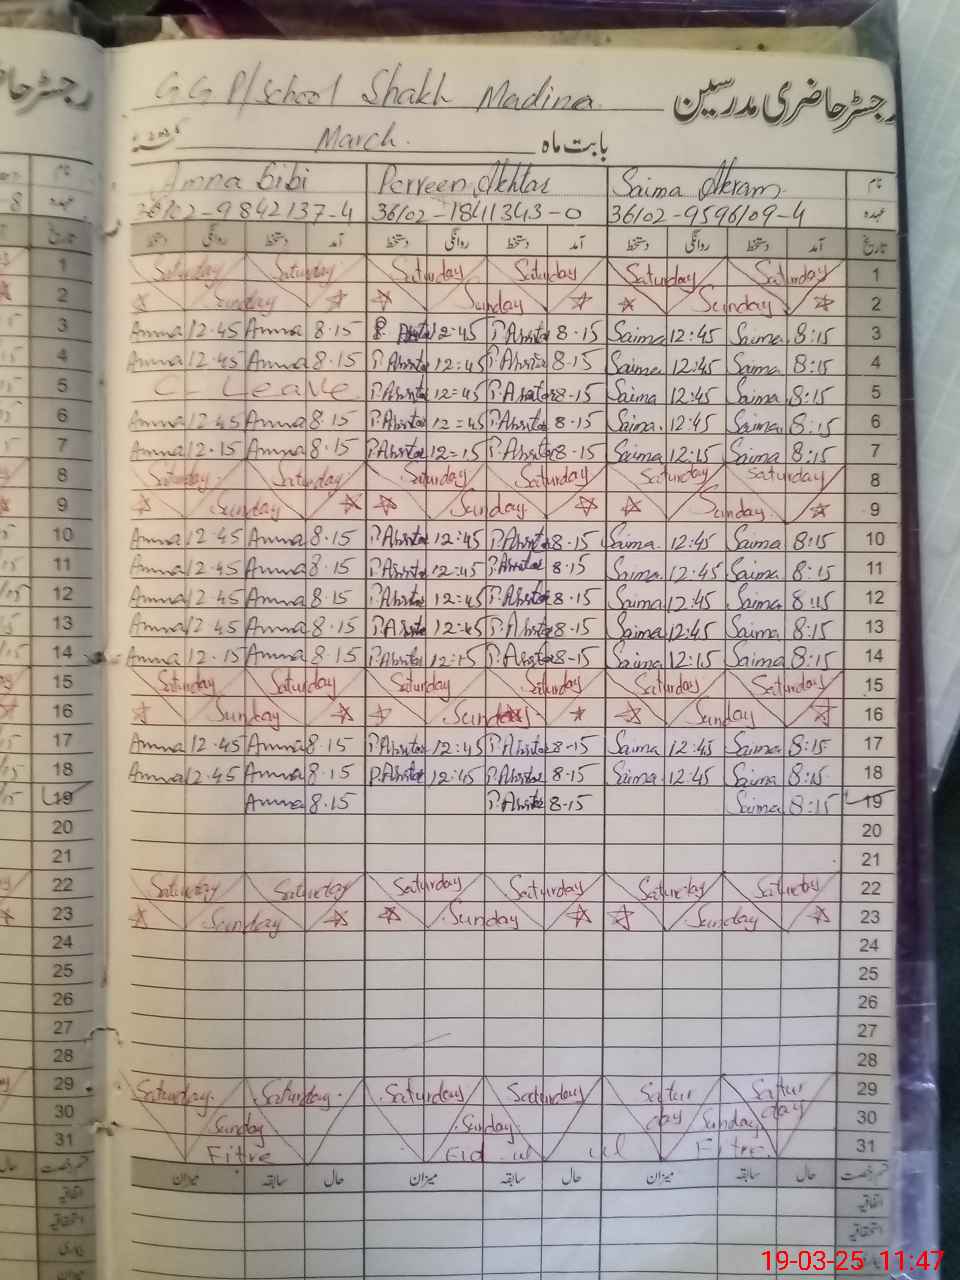 G G P/School Shakh Madina رجسٹر حاضری مدرسین
March. بابت ماہ
Amna Bibi Perveen Akhtar Saima Akram نام
36102-9842137-4 36102-1841343-0 36102-9596109-4 عہدہ
دستخط روانگی دستخط آمد دستخط روانگی دستخط آمد دستخط روانگی دستخط آمد تاریخ
Saturday Saturday Saturday Saturday Saturday Saturday 1
Sunday Sunday Sunday 2
Amna 12.45 Amna 8.15 12:45 P.Akhtar 8-15 Saima 12:45 Saima 8:15 3
Amna 12.45 Amna 8.15 P.Akhtar 12=45 P.Akhtar 8-15 Saima 12:45 Saima 8:15 4
C- Leave P.Akhtar 12=45 P.Akhtar 8-15 Saima 12:45 Saima 8:15 5
Amna 12.45 Amna 8.15 P.Akhtar 12=45 P.Akhtar 8-15 Saima. 12:45 Saima. 8:15 6
Amna 12.15 Amna 8.15 P.Akhtar 12=15 P.Akhtar 8-15 Saima 12:15 Saima 8:15 7
Saturday Saturday Saturday Saturday Saturday Saturday 8
Sunday Sunday Sunday 9
Amna 12.45 Amna 8.15 P.Akhtar 12:45 P.Akhtar 8-15 Saima. 12:45 Saima 8:15 10
Amna 12.45 Amna 8.15 P.Akhtar 12:45 P.Akhtar 8-15 Saima. 12:45 Saima 8:15 11
Amna 12.45 Amna 8.15 P.Akhtar 12:45 P.Akhtar 8-15 Saima 12:45 Saima 8:15 12
Amna 12.45 Amna 8.15 P.Akhtar 12:45 P.Akhtar 8-15 Saima 12:45 Saima 8:15 13
Amna 12.15 Amna 8.15 P.Akhtar 12:15 P.Akhtar 8-15 Saima 12:15 Saima 8:15 14
Saturday Saturday Saturday Saturday Saturday Saturday 15
Sunday Sunday Sunday 16
Amna 12.45 Amna 8.15 P.Akhtar 12:45 P.Akhtar 8-15 Saima 12:45 Saima 8:15 17
Amna 12.45 Amna 8.15 P.Akhtar 12:45 P.Akhtar 8-15 Siima 12:45 Saima 8:15 18
Amna 8.15 P.Akhtar 8-15 Saima 8:15 19
20
21
Saturday Saturday Saturday Saturday Saturday Saturday 22
Sunday Sunday Sunday 23
24
25
26
27
28
Saturday. Saturday. Saturday Saturday Saturday Saturday 29
Sunday Sunday Sunday 30
Fitre Eid ul ul Fitre. 31
میزان سابقہ حال میزان سابقہ حال میزان سابقہ حال قسم رخصت
اتفاقیہ
استحقاقیہ
بیماری
میزان
19-03-25 11:47